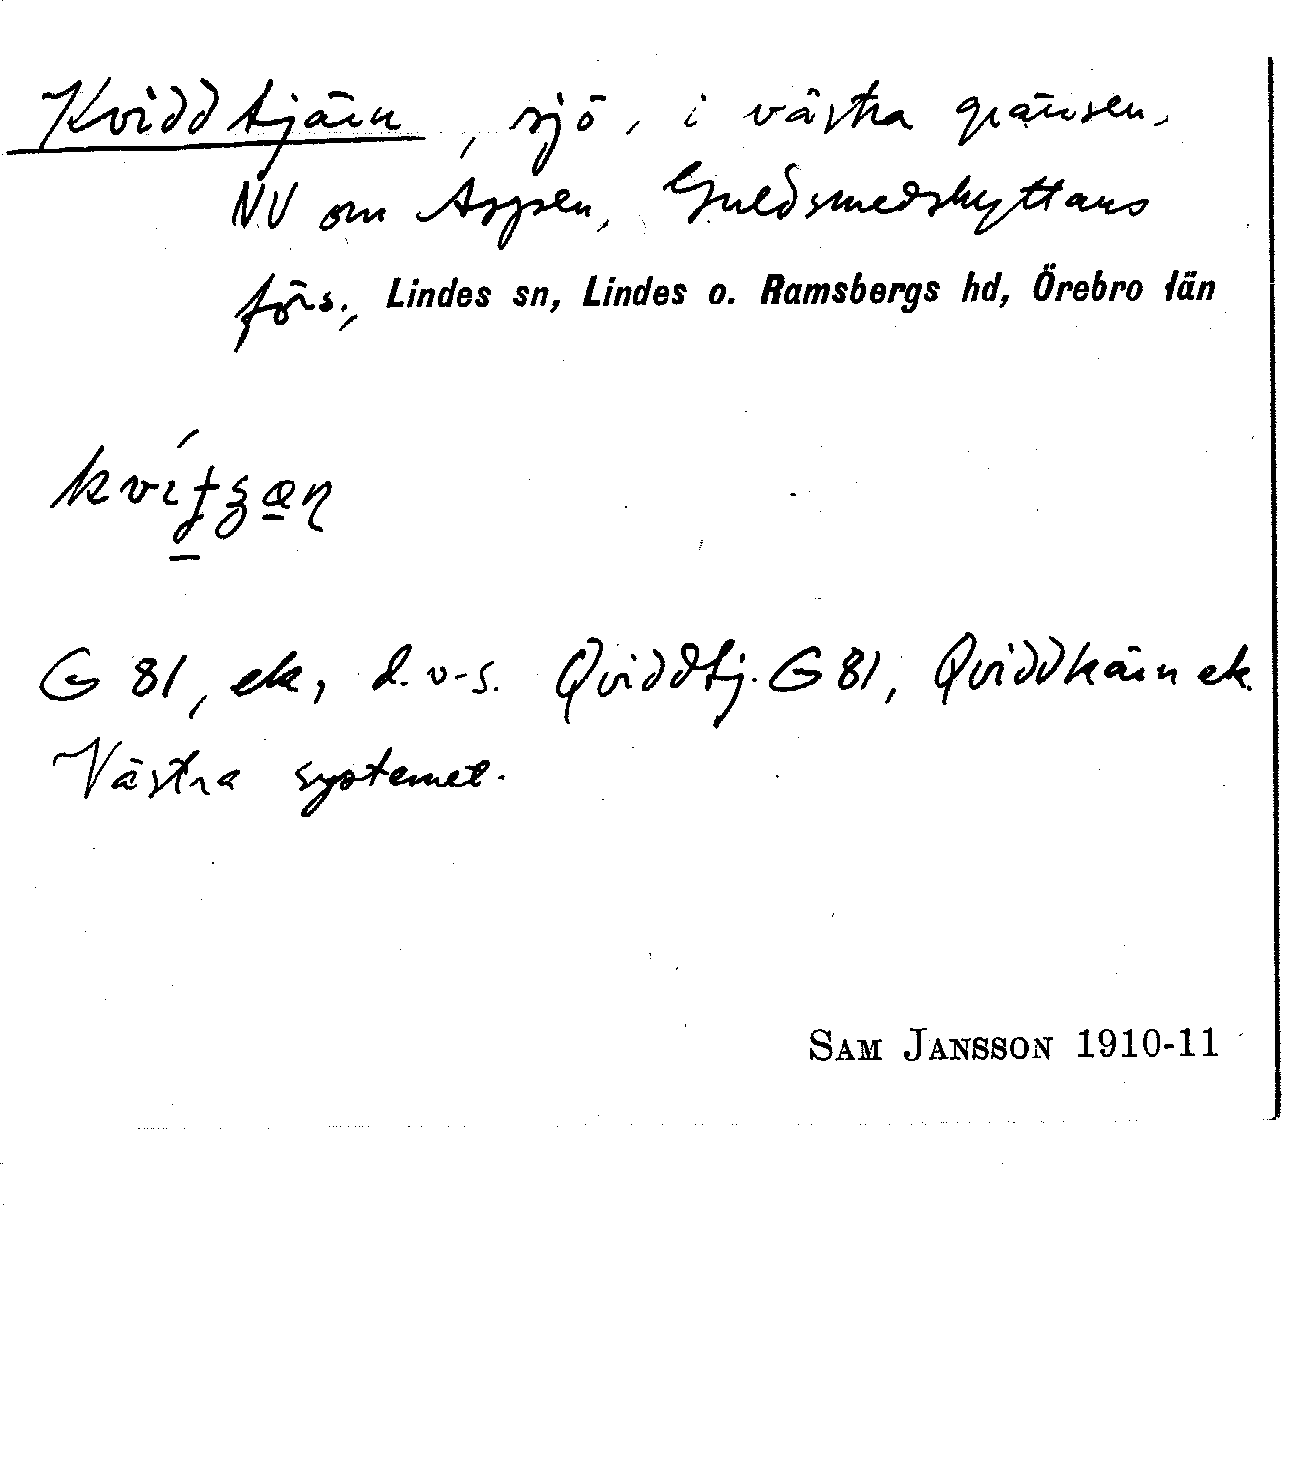 Kviddtjärn, sjö, i västra gränsen,
NV om Aspen, Guldsmedshyttans
förs., Lindes sn, Lindes o. Ramsbergs hd, Örebro län
G 81, ek, d.v.s. Qviddtj. G 81, Qviddkärn ek.
Västra systemet.
SAM JANSSON 1910-11